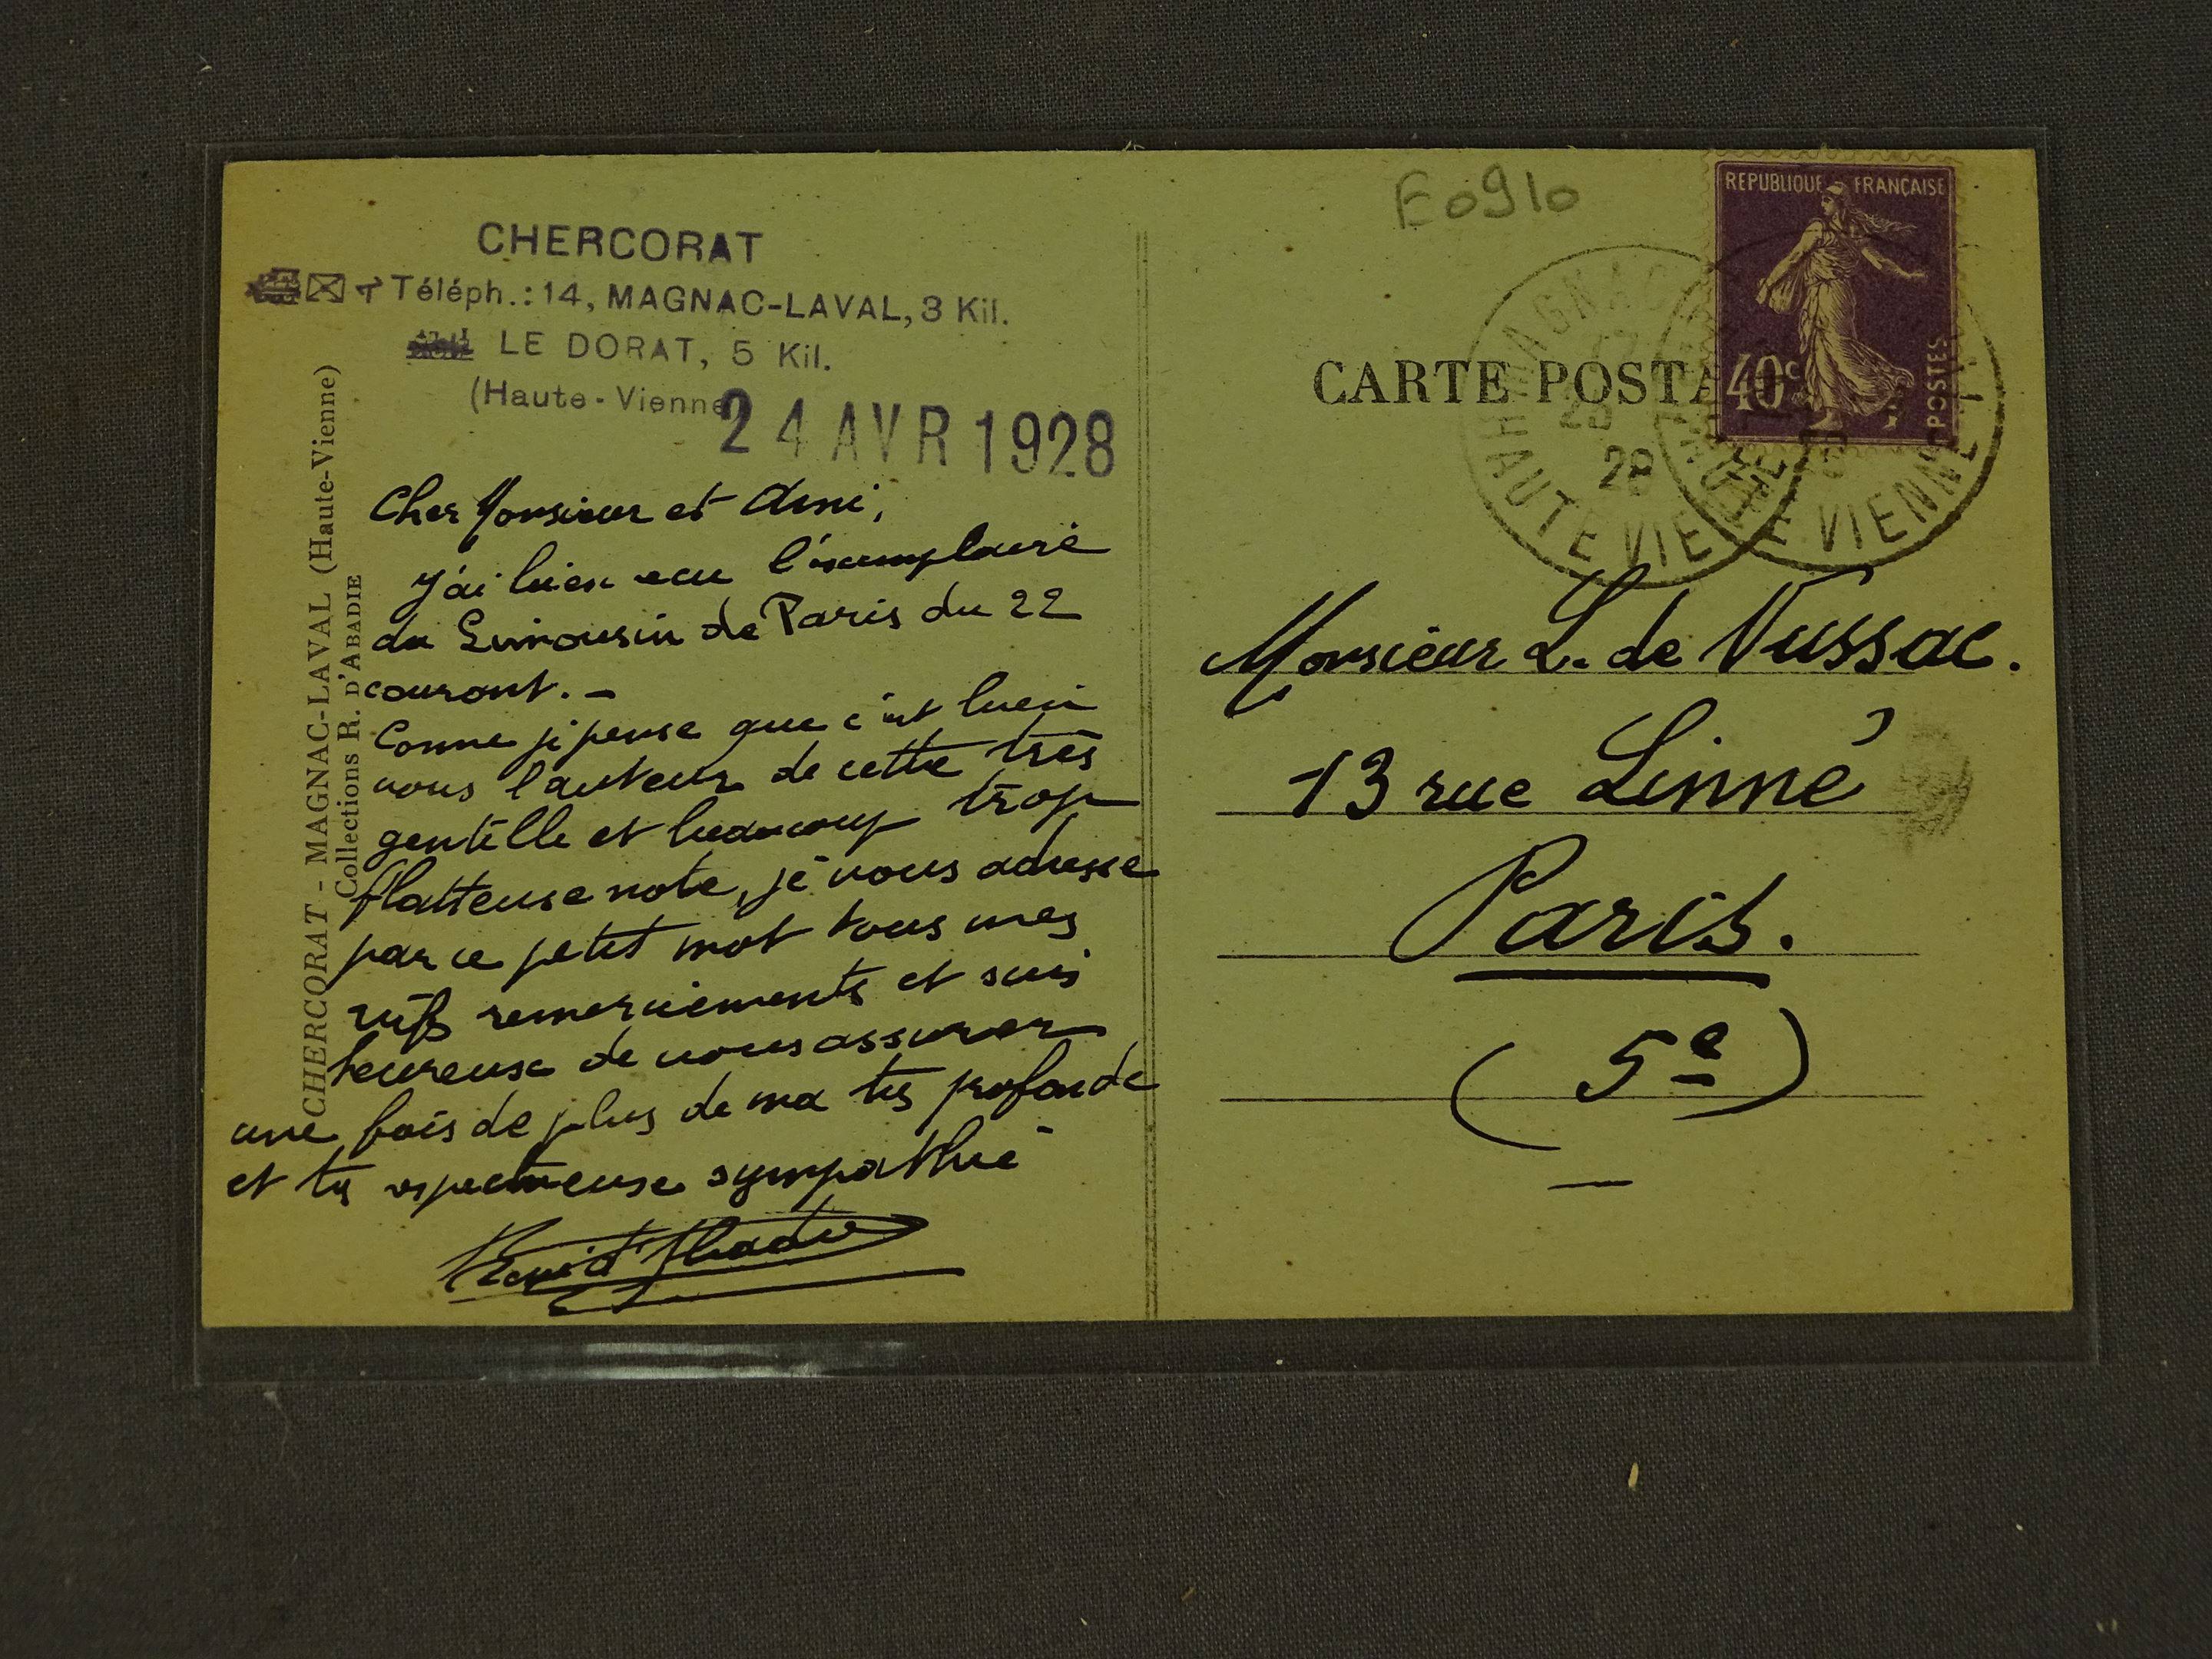 CHERCORAT
Téléph.: 14, MAGNAC-LAVAL, 3 Kil.
LE DORAT, 5 Kil.
(Haute-Vienne
24 AVR 1928
Cher Monsieur et Ami,
J'ai bien eu l'exemplaire
du Limousin de Paris du 22
courant. -
Comme je pense que c'est bien
vous l'auteur de cette très
gentille et beaucoup trop
flatteuse note, je vous adresse
par ce petit mot tous mes
vifs remerciements et suis
heureuse de vous assurer
une fois de plus de ma très profonde
et très respectueuse sympathie
CHERCORAT - MAGNAC-LAVAL (Haute-Vienne)
Collections R. D'ABADIE
E0910
REPUBLIQUE FRANÇAISE
40c
POSTES
CARTE POSTA
MAGNAC
28
HAUTE VIENNE
E VIENNE
Monsieur L. de Nussac.
13 rue Linné
Paris.
(5e)